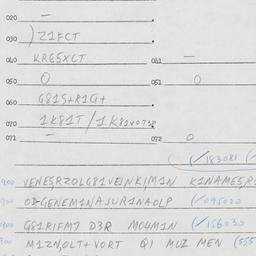 020 —
030 )Z1FCT
040 KRE5XCT 041 —
050 0 051 0
060 G81S+R1G+
070 1K81T/1K81V073P
071 — 072 0
(✓183081
900 VENESRZOLG81VEINKIM1N K1NAMESR
900 GENEM1NAJUR1NAOLP (✓095020
900 G81RIFM7 D3R M04M1N (✓156030
900 M1ZN,OLT+VORT Q1 MUZ MEN (555